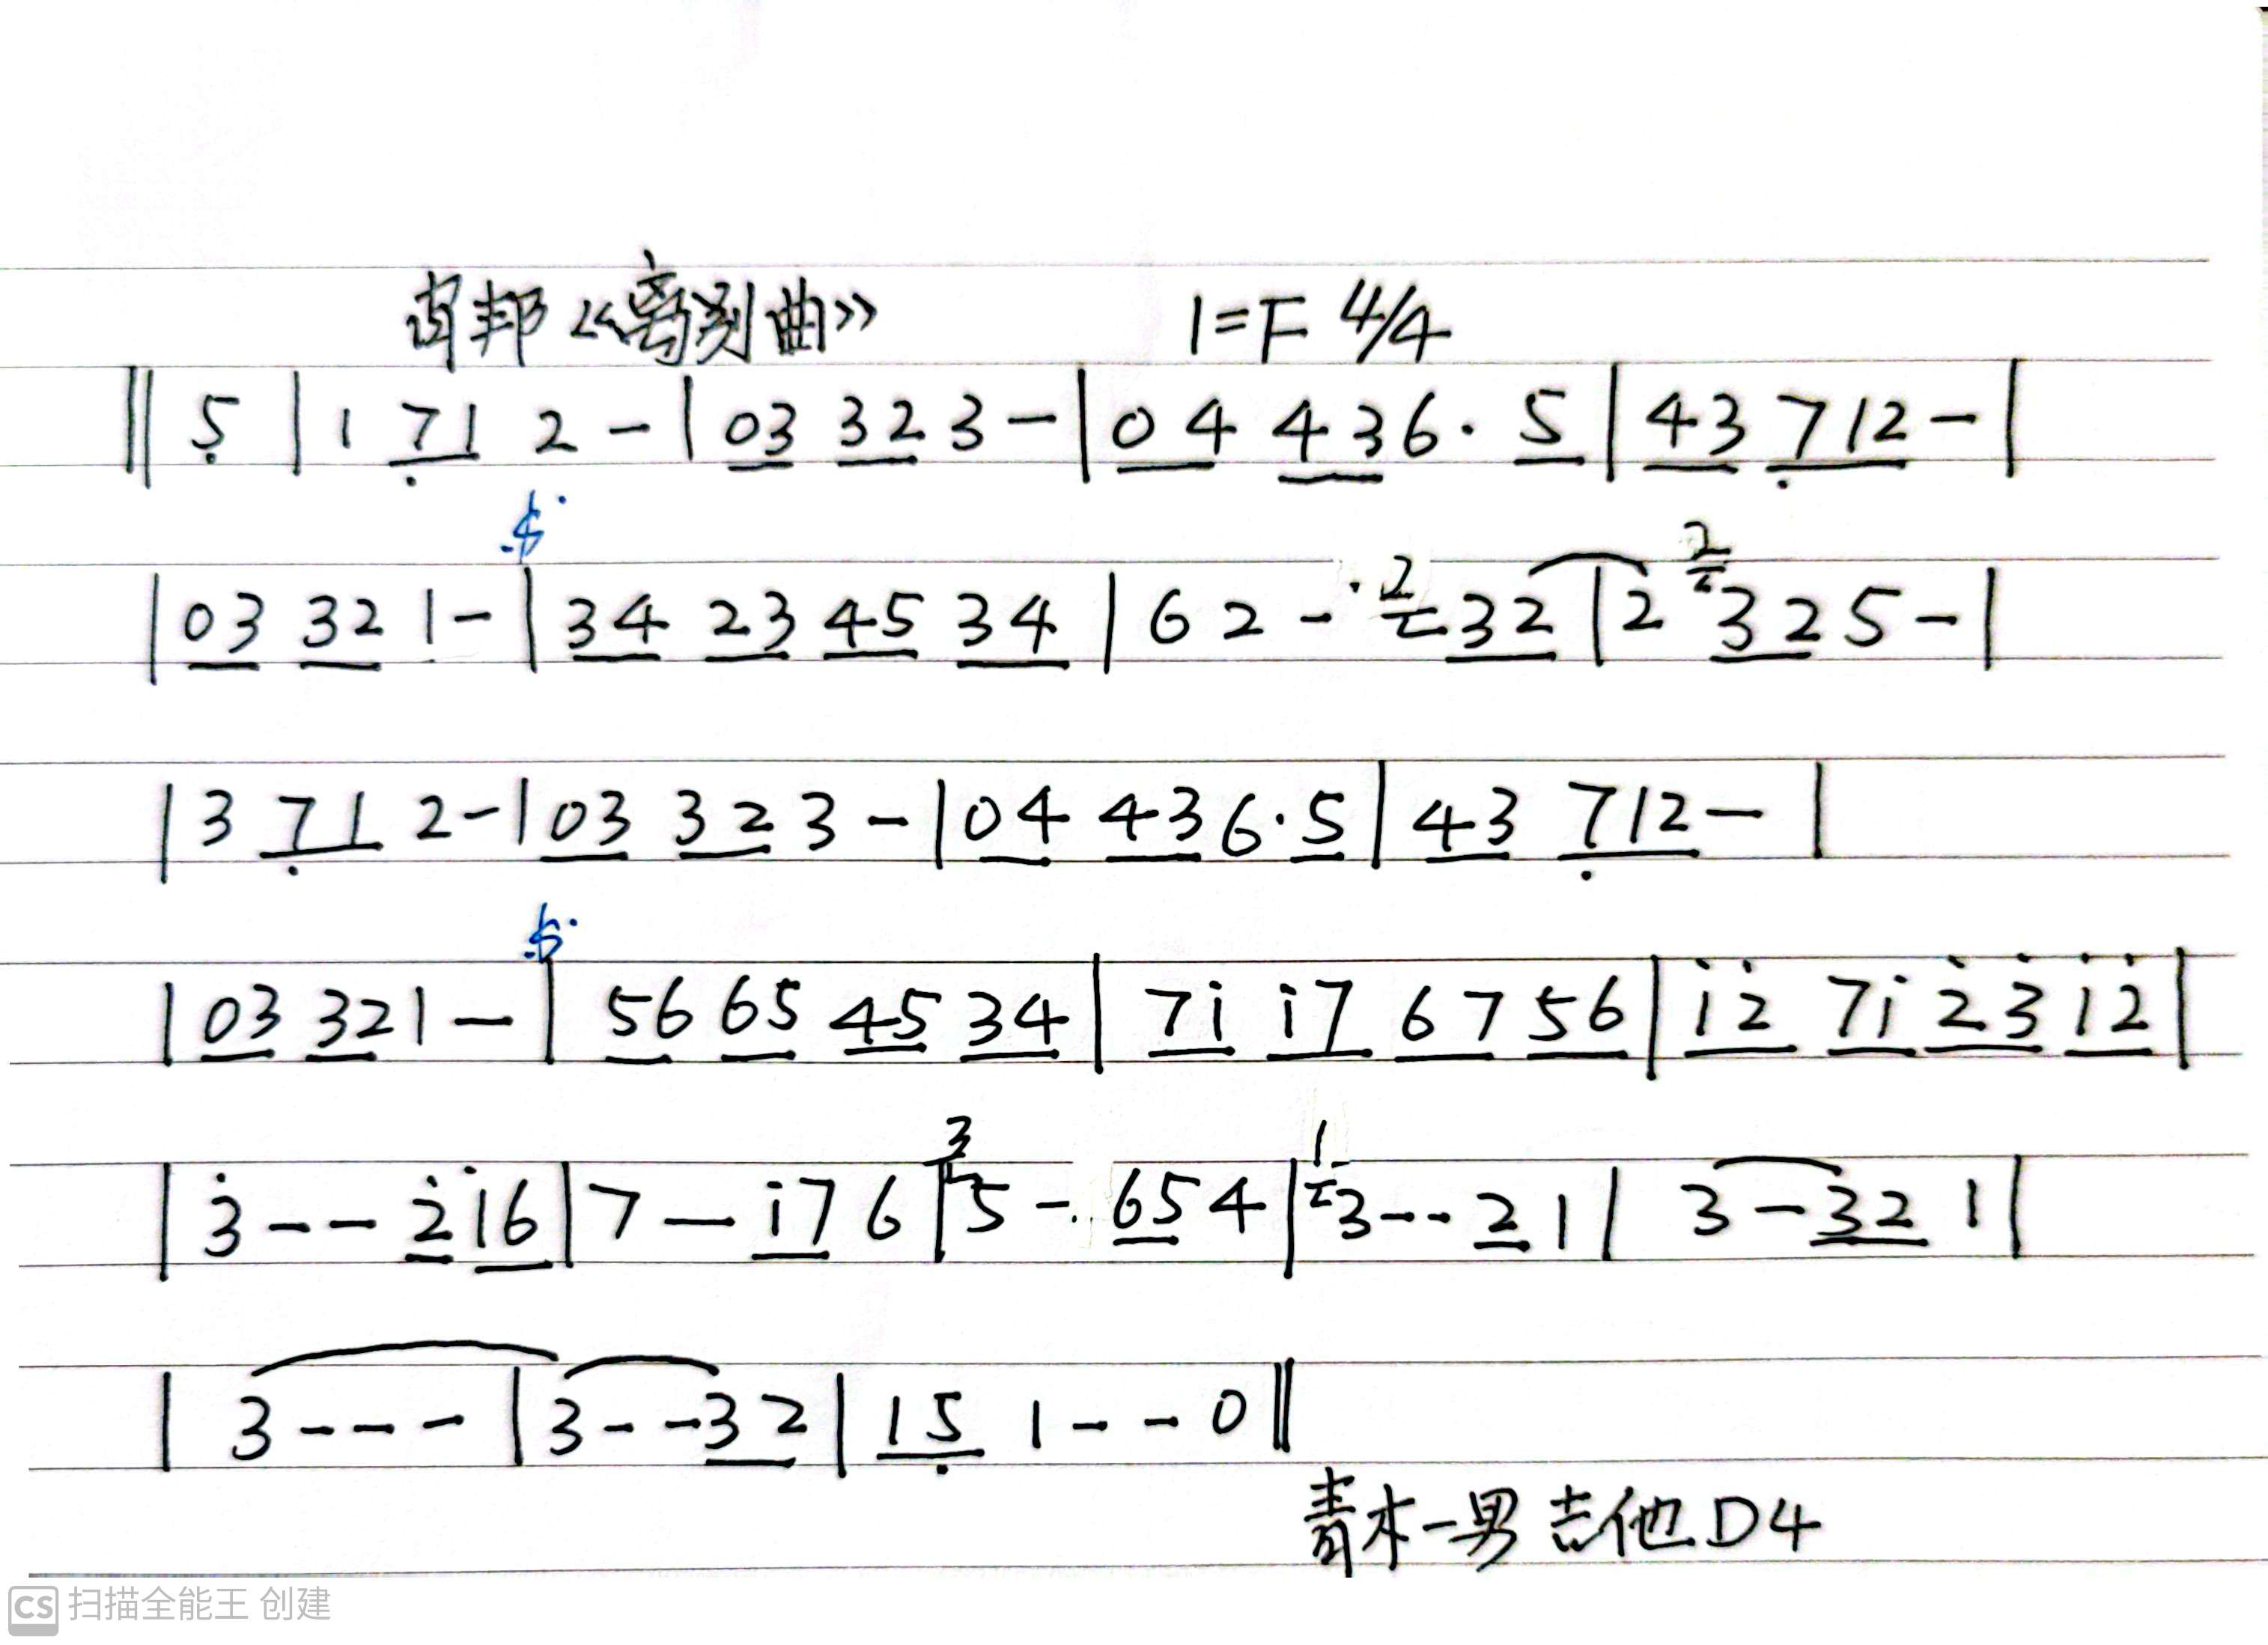 肖邦《离别曲》 1=F 4/4
‖ 5̣ | 1 7̣1 2 - | 03 32 3 - | 04 43 6· 5 | 43 7̣12 - |
| 03 32 1 - | 34 23 45 34 | 6 2 - 2 32 | 2 2 32 5 - |
| 3 7̣1 2 - | 03 32 3 - | 04 43 6· 5 | 43 7̣12 - |
| 03 32 1 - | 56 65 45 34 | 7i i7 67 56 | i2̇ 7i 2̇3̇ i2̇ |
| 3̇ - - 2̇ i6 | 7 — i7 6 | 3 5 - 65 4 | 1 3 - - 2 1 | 3 - 32 1 |
| 3 - - - | 3 - - 32 | 15̣ 1 - - 0 ‖
青木一男 吉他D4
CS 扫描全能王 创建